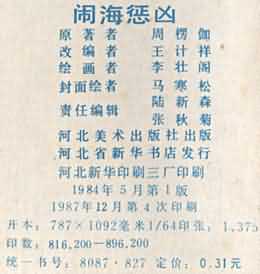 闹海惩凶
原著者 周楞伽
改编者 王计祥
绘画者 李壮阁
封面绘者 马寒松
责任编辑 陆新森
张秋菊
河北美术出版社出版
河北省新华书店发行
河北新华印刷三厂印刷
1984年5月第1版
1987年12月第4次印刷
开本:787×1092毫米1/64印张:1.375
印数:816,200—896,200
统一书号:8087·827 定价:0.31元